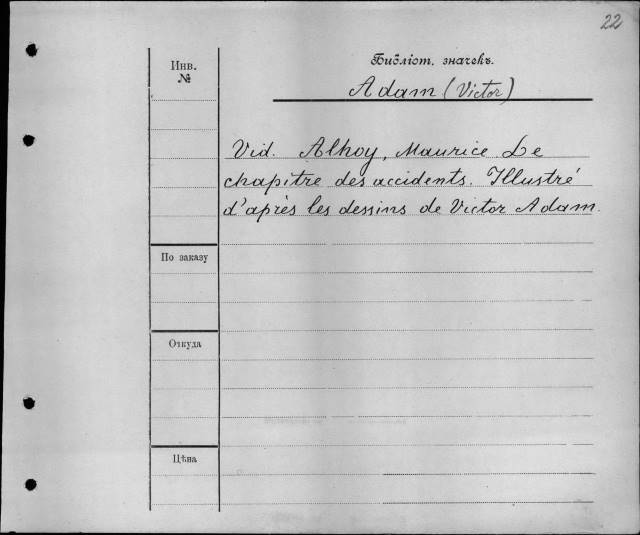 22
Инв.
№
Библіот. значекъ.
Adam (Victor)
Vid. Alhoy, Maurice. Le
chapitre des accidents. Illustré
d'après les dessins de Victor Adam.
По заказу
Откуда
Цѣна